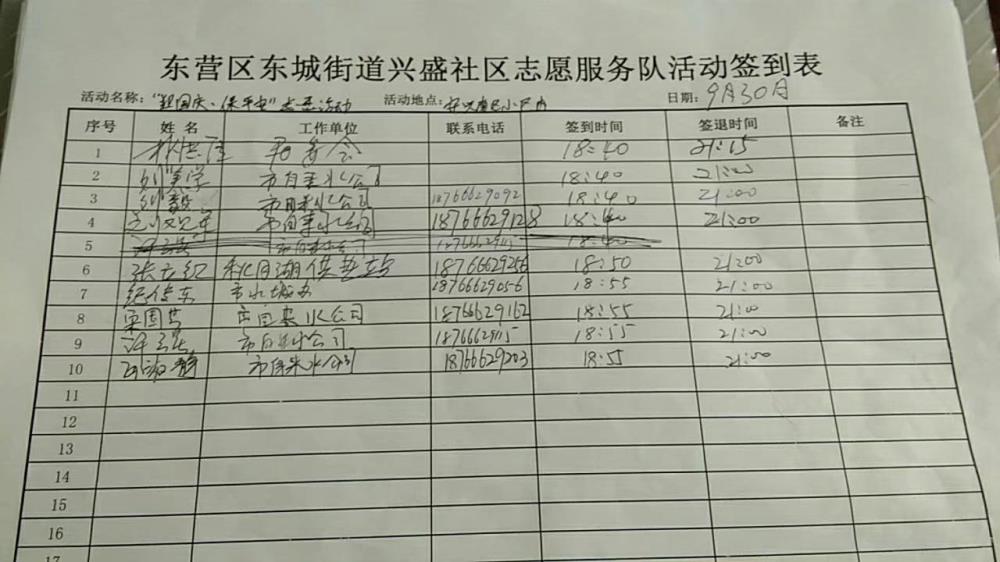 东营区东城街道兴盛社区志愿服务队活动签到表
活动名称："迎国庆·保平安"志愿活动 活动地点： 小区内 日期：9月30日
序号 姓名 工作单位 联系电话 签到时间 签退时间 备注
1 居委会 18:40 21:15
2 刘美学 市自来水公司 18:40 21:00
3 刘毅 市自来水公司 18766629092 18:40 21:00
4 市自来水公司 18766629128 18:40 21:00
5 市自来水公司 18766629115 18:40
6 张立红 秋月湖供热站 18766629256 18:50 21:00
7 纪传东 市水城办 18766629056 18:55 21:00
8 栾国芳 市自来水公司 18766629162 18:55 21:00
9 市自来水公司 18766629115 18:55 21:00
10 市自来水公司 18766629203 18:55 21:00
11
12
13
14
15
16
17